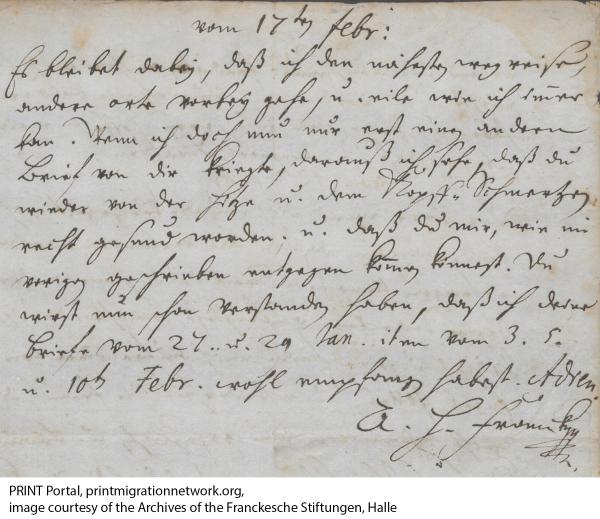 vom 17ten Febr:
Es bleibet dabey, daß ich den nähesten weg reise,
andere orte vorbey gehe, u. eile wie ich immer
kan. Wenn ich doch nun nur erst einen andern
Brief von dir kriegte, darauß ich sehe, daß du
wieder von der Hitze u. dem Kopff-Schmertzen
recht gesund worden. u. daß du mir, wie im
vorigen geschrieben entgegen kommen könnest. Du
wirst nun schon verstanden haben, daß ich deine
Briefe vom 27. u. 29 Jan. item vom 3. 5.
u. 10th Febr. wohl empfangen habe. Adieu.
A. H. Francke
PRINT Portal, printmigrationnetwork.org,
image courtesy of the Archives of the Franckesche Stiftungen, Halle